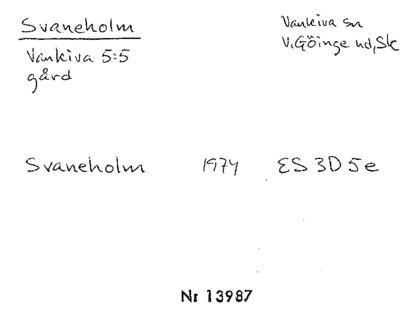 Svaneholm
Vankiva sn
Vankiva 5:5
V. Göinge hd, Sk
gård
Svaneholm 1974 ES 3D5e
Nr 13987